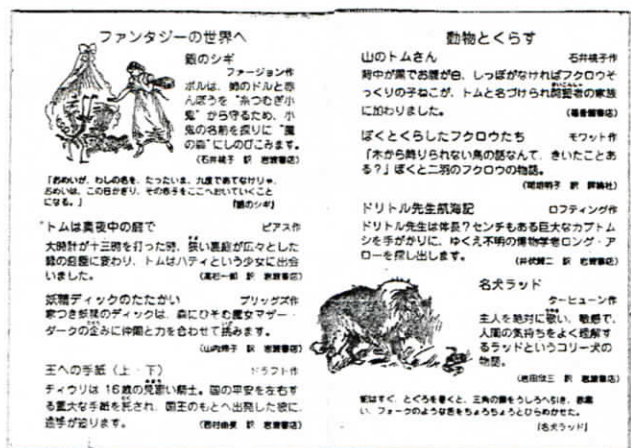 ファンタジーの世界へ
銀のシギ
ファージョン作
ポルは、姉のドルと赤
んぼうを“糸つむぎ小
鬼”から守るため、小
鬼の名前を探りに“魔
の森”にしのびこみます。
(石井桃子 訳 岩波書店)
「おめいが、わしの名を、たったいま、九度であてなけりゃ、
おめいは、この日かぎり、その赤子をここへおいていくこと
になる。」 『銀のシギ』
トムは真夜中の庭で
ピアス作
大時計が十三時を打った時、狭い裏庭が広々とした
緑の庭園に変わり、トムはハティという少女に出会
いました。 (高杉一郎 訳 岩波書店)
妖精ディックのたたかい
ブリッグズ作
家つき妖精のディックは、森にひそむ魔女マザー・
ダークの企みに仲間と力を合わせて挑みます。
(山内玲子 訳 岩波書店)
王への手紙(上・下)
ドラフト作
ティウリは16歳の見習い騎士。国の平安を左右す
る重大な手紙を託され、国王のもとへ出発した彼に、
追手が迫ります。 (西村由美 訳 岩波書店)
動物とくらす
山のトムさん
石井桃子作
背中が黒でお腹が白、しっぽがなければフクロウそ
っくりの子ねこが、トムと名づけられ開墾者の家族
に加わりました。 (福音館書店)
ぼくとくらしたフクロウたち
モワット作
「木から降りられない鳥の話なんて、きいたことあ
る?」ぼくと二羽のフクロウの物語。
(稲垣明子 訳 評論社)
ドリトル先生航海記
ロフティング作
ドリトル先生は体長7センチもある巨大なカブトム
シを手がかりに、ゆくえ不明の博物学者ロング・ア
ローを探し出します。 (井伏鱒二 訳 岩波書店)
名犬ラッド
ターヒューン作
主人を絶対に敬い、敏感で、
人間の気持ちをよく理解す
るラッドというコリー犬の
物語。
(岩田欣三 訳 岩波書店)
蛇はすぐ、とぐろを巻くと、三角の頭をうしろへ引き、赤黒
い、フォークのような舌をちょろちょろとひらめかせた。
『名犬ラッド』